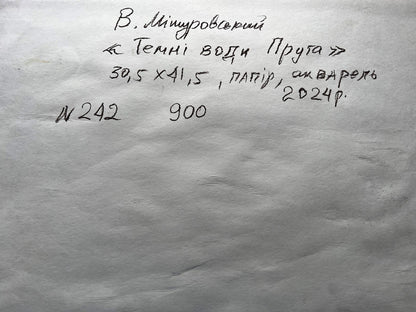 В. Мішуровський
« Темні води Прута »
30,5 х 41,5 , папір, акварель
2024р.
№ 242 900